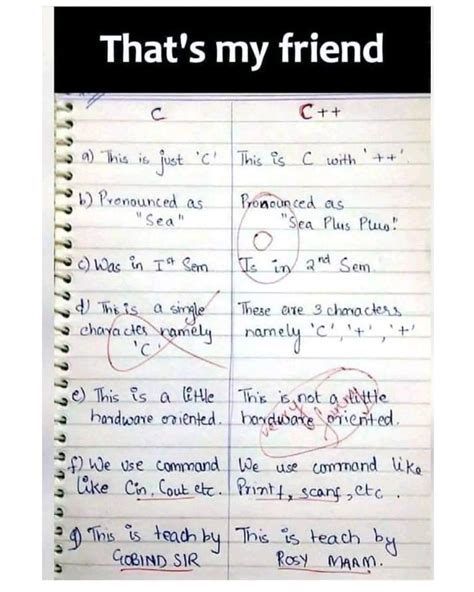 That's my friend
C
C++
a) This is just 'C'
This is C with '++'
b) Pronounced as
"Sea"
Pronounced as
"Sea Plus Plus!"
0
c) Was in Ist Sem
Is in 2nd Sem
d) This is a single
character namely
'C'
These are 3 characters
namely 'C', '+', '+'
e) This is a little
hardware oriented.
This is not a little
hardware oriented.
very funny
f) We use command
like Cin, Cout etc.
We use command like
Printf, scanf, etc.
g) This is teach by
GOBIND SIR
This is teach by
ROSY MAAM.